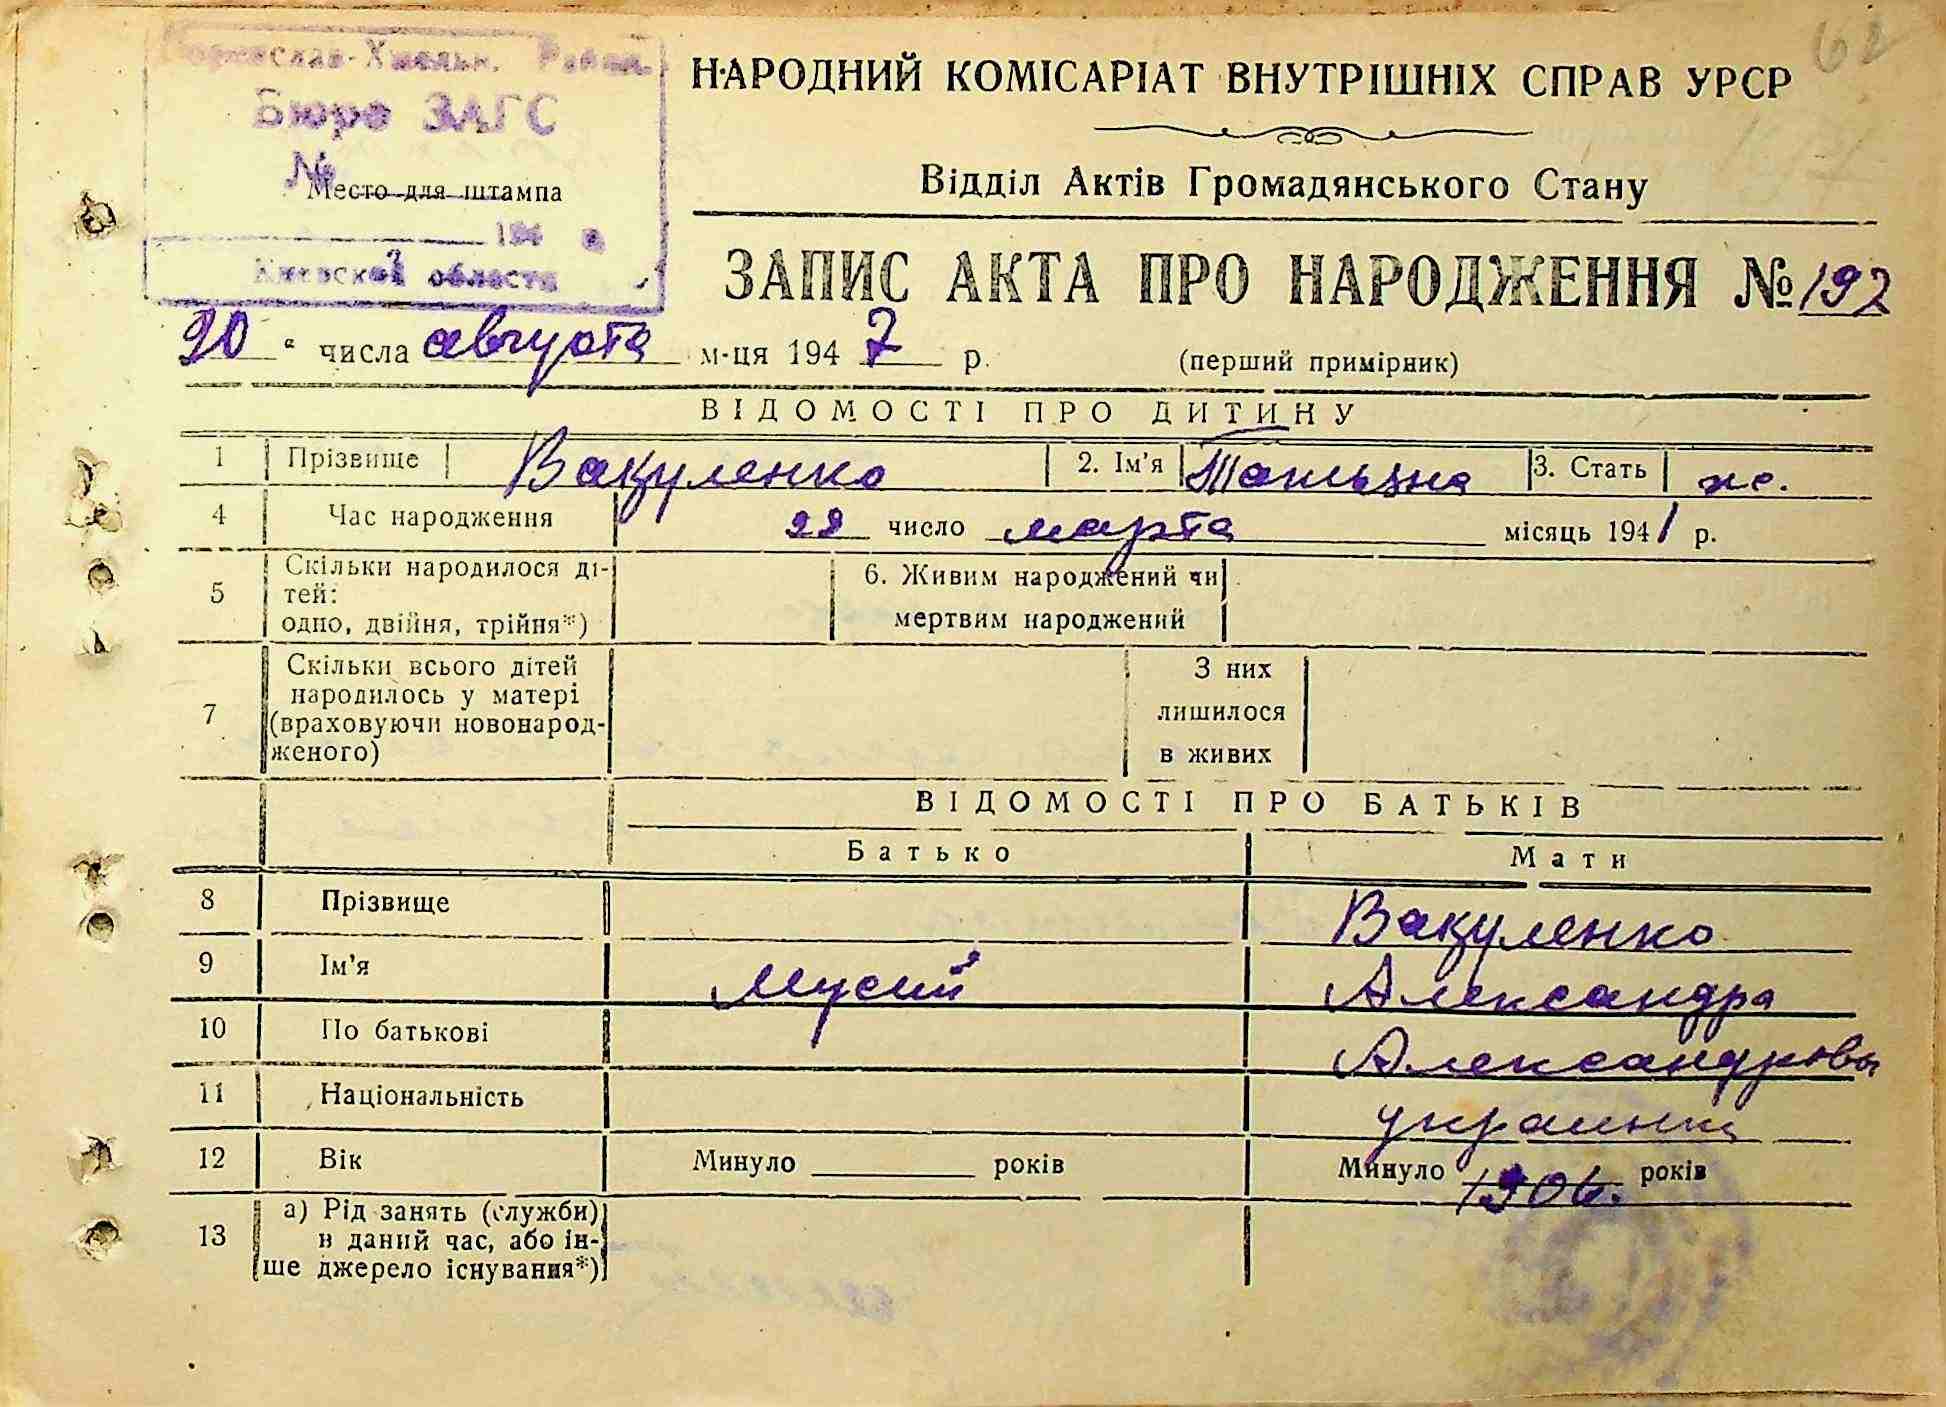 62
Переяслав-Хмельн. Район.
Бюро ЗАГС
№
Место для штампа
194
Киевской области
НАРОДНИЙ КОМІСАРІАТ ВНУТРІШНІХ СПРАВ УРСР
Відділ Актів Громадянського Стану
ЗАПИС АКТА ПРО НАРОДЖЕННЯ № 192
20 " числа августа м-ця 1947 р. (перший примірник)
ВІДОМОСТІ ПРО ДИТИНУ
1 Прізвище Вакуленко 2. Ім'я Татьяна 3. Стать ж.
4 Час народження 22 число марта місяць 1941 р.
5 Скільки народилося ді-
тей:
одно, двійня, трійня*)
6. Живим народжений чи
мертвим народжений
7 Скільки всього дітей
народилось у матері
(враховуючи новонарод-
женого)
З них
лишилося
в живих
ВІДОМОСТІ ПРО БАТЬКІВ
Батько Мати
8 Прізвище Вакуленко
9 Ім'я Мусий Александра
10 По батькові Александровна
11 Національність украинка
12 Вік Минуло років Минуло 1906. років
13 а) Рід занять (служби)
в даний час, або ін-
ше джерело існування*)